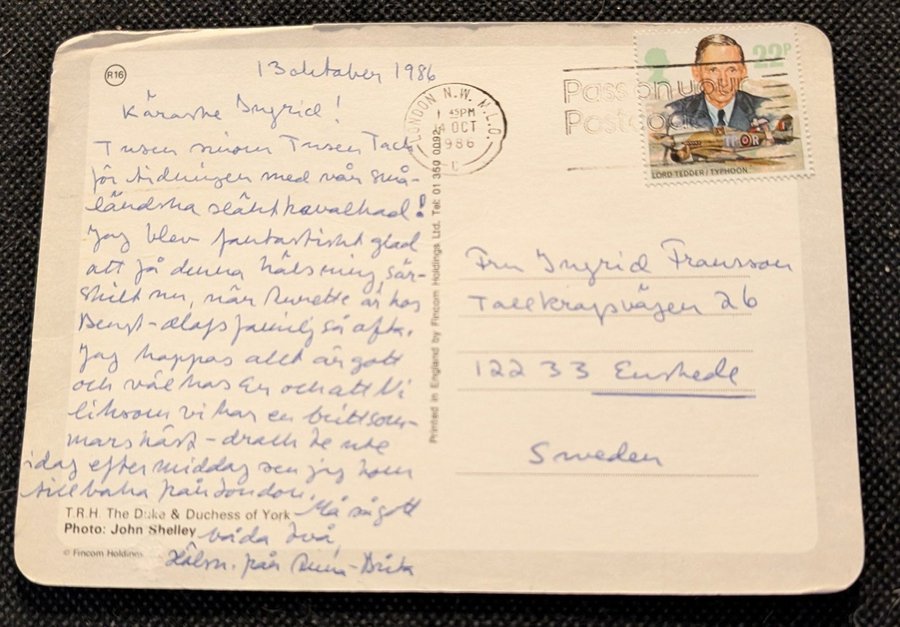 R16
13 oktober 1986
Käraste Ingrid!
Tusen sinom Tusen Tack
för tidningen med vår små-
ländska släktkavalkad!
Jag blev fantastiskt glad
att få denna hälsning sär-
skilt nu, när Anette är hos
Bengt-Olofs familj så ofta.
Jag hoppas allt är gott
och väl hos Er och att Ni
liksom vi har en brittsom-
marshöst - drack te ute
idag eftermiddag sen jag kom
tillbaka från London.
Må så gott
båda två
Hälsn. från Anna-Brita
T.R.H. The Duke & Duchess of York
Photo: John Shelley
© Fincom Holdings
Printed in England by Fincom Holdings Ltd. Tel: 01 350 0092
LONDON N.W. N.L.O.
45PM
14 OCT
1986
C
Pass on your
Postcode
22P
LORD TEDDER/TYPHOON
Fru Ingrid Fransson
Tallkrogsvägen 26
122 33 Enskede
Sweden